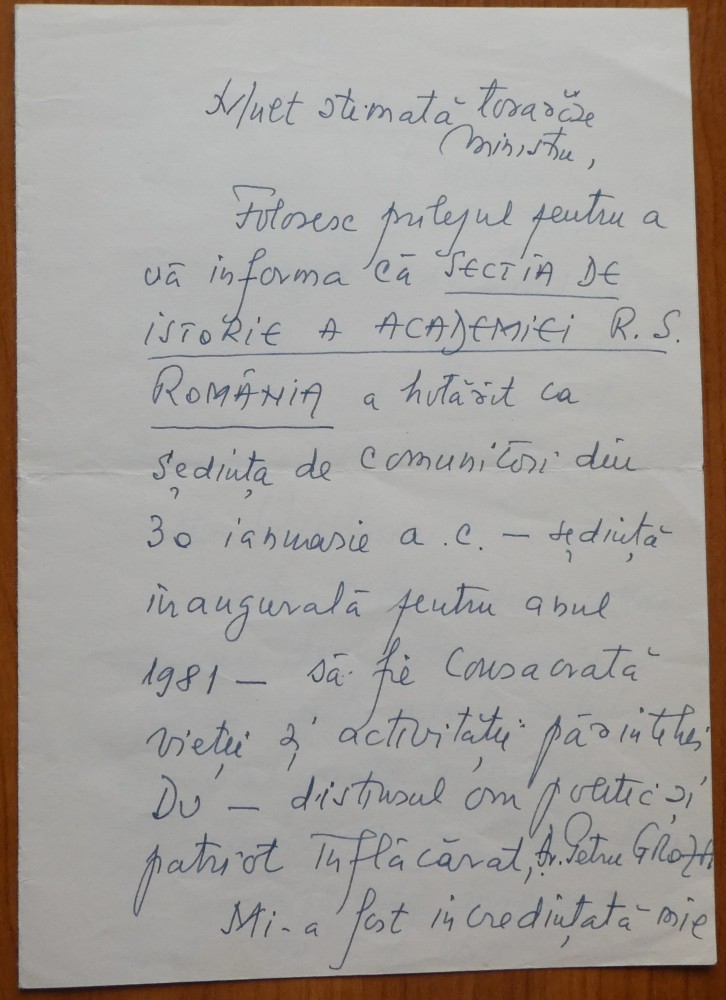 Mult stimată tovarășe
Ministru,
Folosesc prilejul pentru a
vă informa că SECȚIA DE
ISTORIE A ACADEMIEI R.S.
ROMÂNIA a hotărît ca
ședința de comunicări din
30 ianuarie a.c. — ședință
inaugurală pentru anul
1981 — să fie consacrată
vieții și activității părintelui
Dv — distinsul om politic și
patriot înflăcărat, Dr. Petru GROZA
Mi-a fost încredințată mie